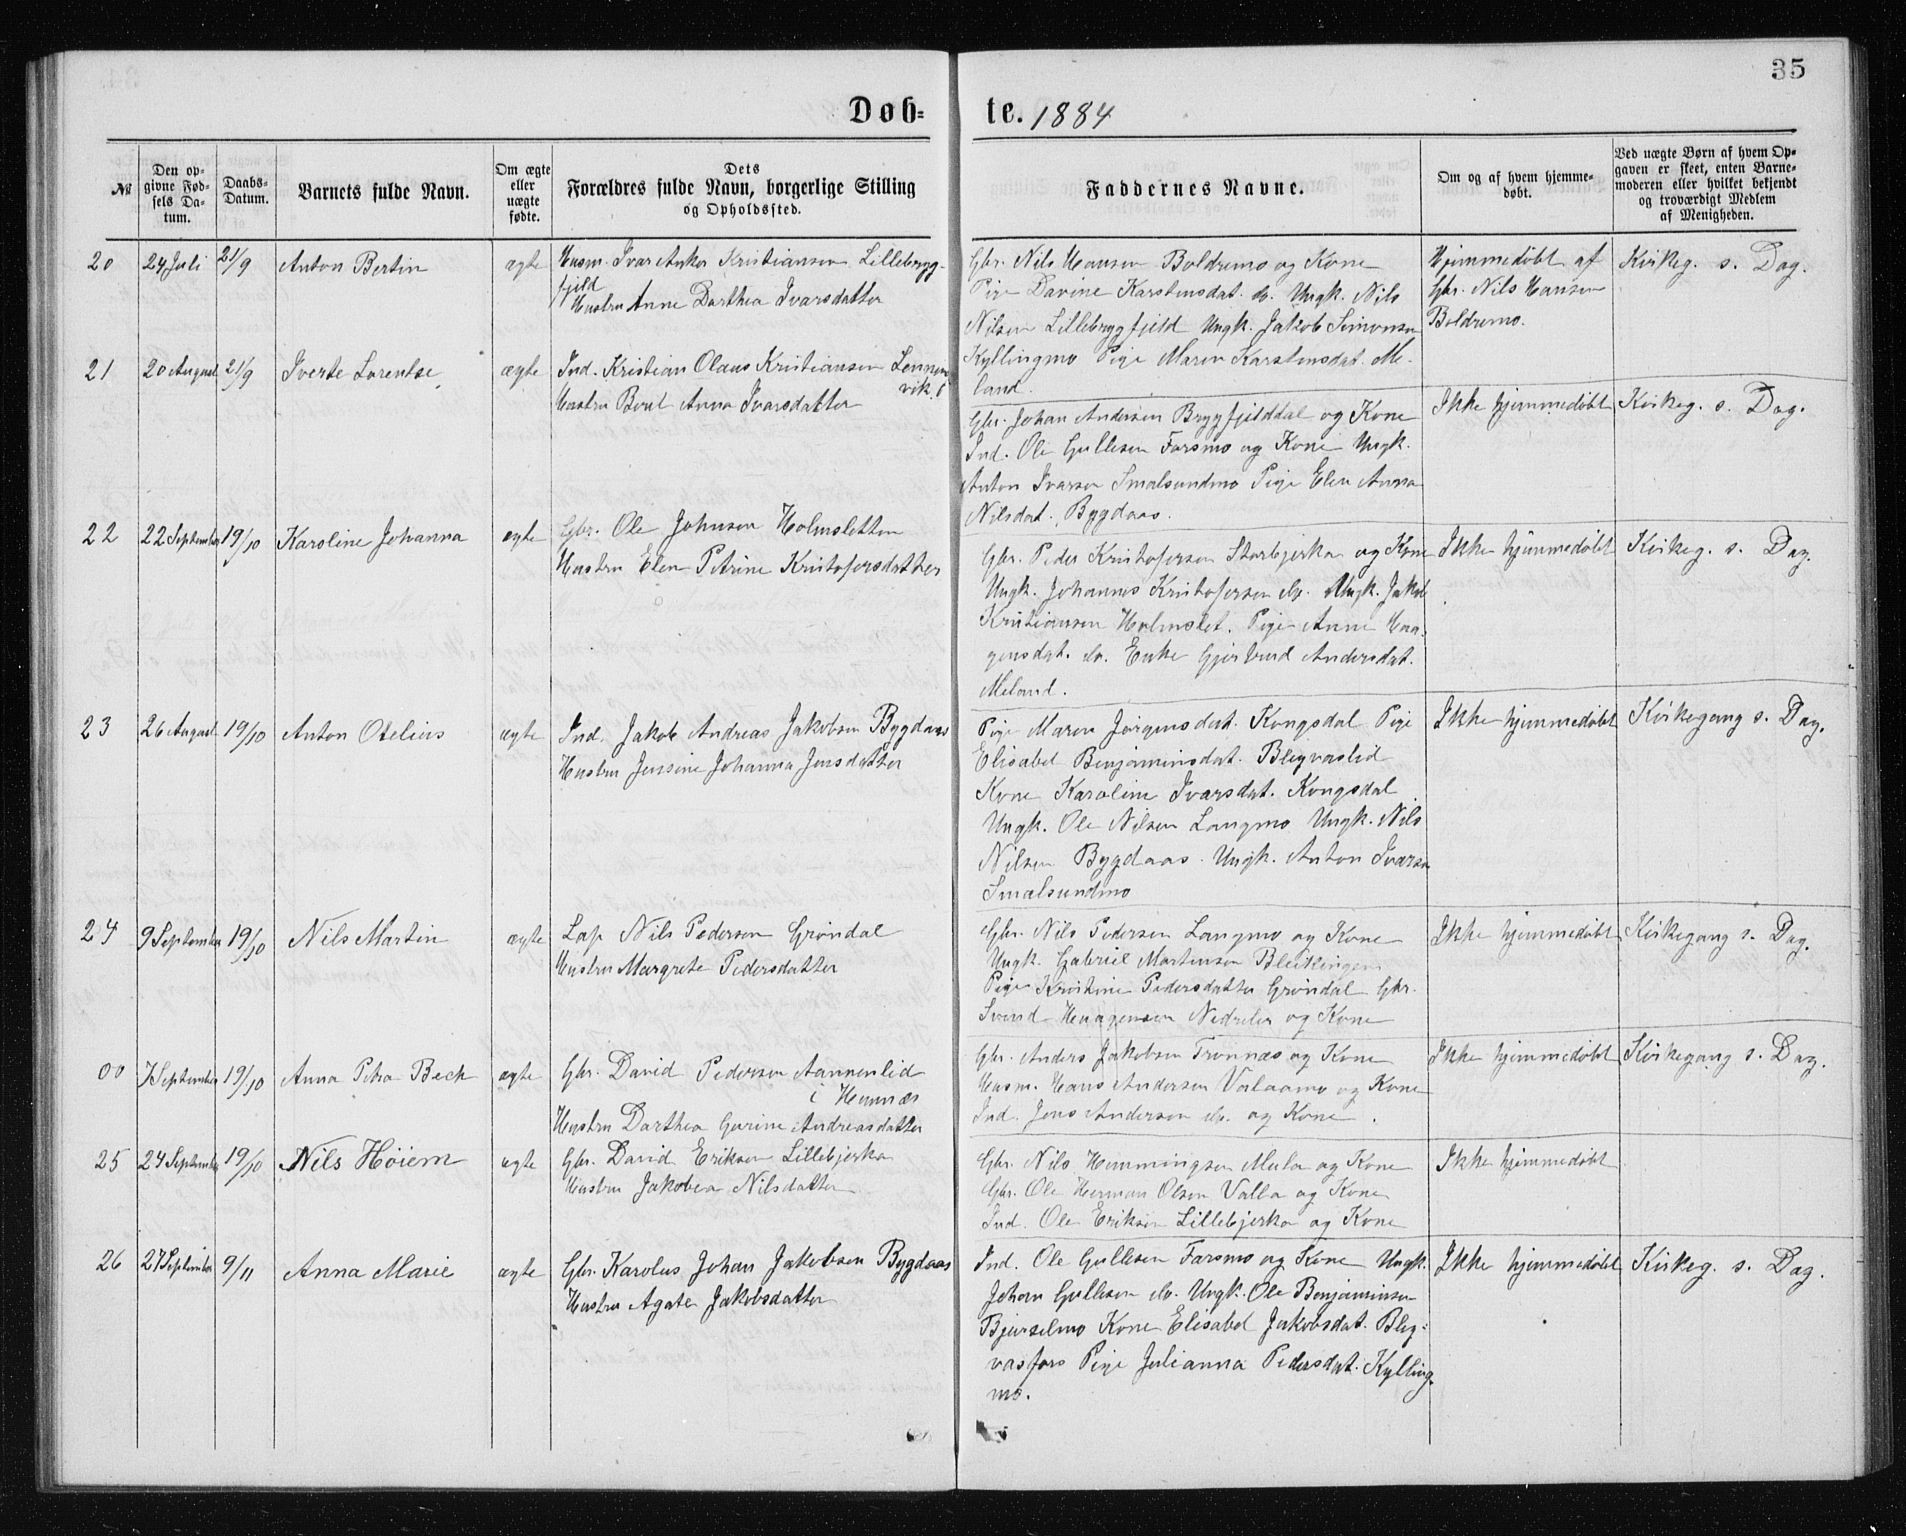 35
Døb- te. 1884
№ Den opgivne Fødsels Datum. Daabs-Datum. Barnets fulde Navn. Om ægte eller uægte fødte. Dets Forældres fulde Navn, borgerlige Stilling og Opholdssted. Faddernes Navne. Om og af hvem hjemmedøbt. Ved uægte Børn af hvem Opgaven er skeet, enten Barnemoderen eller hvilket bekjendt og troværdigt Medlem af Menigheden.
20 24 Juli 21/9 Anton Bertin ægte Husm. Ivar Anker Kristiansen Lillebryg-
fjeld
Hustru Anne Dorthea Ivarsdatter
Gbr. Nils Hansen Boldremo og Kone
Pige Davine Karstensdat. do. Ungk. Nils
Nilsen Lillebrygfjeld Ungk. Jakob Simonsen
Kyllingmo Pige Maren Karstensdat. Me-
land.
Hjemmedøbt af
Gbr. Nils Hansen
Boldremo.
Kirkeg. s. Dag.
21 20 August 21/9 Iverte Lorentse ægte Ind. Kristian Olaus Kristiansen
vik.
Hustru Anna Ivarsdatter
Gbr. Johan Andersen Brygfjelddal og Kone
Ind. Ole Gullesen Farsmo og Kone Ungk.
Anton Ivarsen Smalsundmo Pige Elen Anna
Nilsdat. Bygdaas.
Ikke hjemmedøbt Kirkeg. s. Dag.
22 22 September 19/10 Karoline Johanna ægte Gbr. Ole Johnsen Holmsletten
Hustru Elen Petrine Kristofersdatter
Gbr. Peder Kristofersen Storbjerka og Kone
Ungk. Johannes Kristofersen do. Ungk. Jakob
Kristiansen Holmslet. Pige Anne Haa-
gensdat. do. Enke Gjertrud Andersdat.
Meland.
Ikke hjemmedøbt Kirkeg. s. Dag.
23 26 August 19/10 Anton Otelius ægte Ind. Jakob Andreas Jakobsen Bygdaas
Hustru Jensine Johanna Jensdatter
Pige Maren Jørgensdat. Kongsdal Pige
Elisabet Benjaminsdat. Blegvaslid
Kone Karoline Ivarsdat. Kongsdal
Ungk. Ole Nilsen Langmo Ungk. Nils
Nilsen Bygdaas. Ungk. Anton Ivarsen
Smalsundmo
Ikke hjemmedøbt Kirkegang s. Dag.
24 9 September 19/10 Nils Martin ægte Lap Nils Pedersen Grøndal
Hustru Margrete Pedersdatter
Gbr. Nils Pedersen Langmo og Kone
Ungk. Gabriel Mortensen
Pige Kristine Pedersdatter Grøndal Gbr.
Svend Haagensen og Kone
Ikke hjemmedøbt Kirkegang s. Dag.
00 7 September 19/10 Anna Petra Bech ægte Gbr. David Pedersen Aanmenlid
i Hemnæs
Hustru Dorthea Gurine Andreasdatter
Gbr. Anders Jakobsen Trønnæs og Kone
Husm. Hans Andersen Valaamo og Kone
Ind. Jens Andersen do. og Kone.
Ikke hjemmedøbt Kirkegang s. Dag.
25 24 September 19/10 Nils Høiem ægte Gbr. David Eriksen Lillebjerka
Hustru Jakobea Nilsdatter
Gbr. Nils Hemmingsen Mula og Kone
Gbr. Ole Herman Olsen Valla og Kone
Ind. Ole Eriksen Lillebjerka og Kone
Ikke hjemmedøbt
26 27 September 9/11 Anna Marie ægte Gbr. Karolus Johan Jakobsen Bygdaas
Hustru Agate Jakobsdatter
Ind. Ole Gullesen Farsmo og Kone Ungk.
Johan Gullesen do. Ungk. Ole Benjaminsen
Bjurselmo Kone Elisabet Jakobsdat. Bleg-
vasfors Pige Julianna Pedersdat. Kylling-
mo.
Ikke hjemmedøbt Kirkeg. s. Dag.